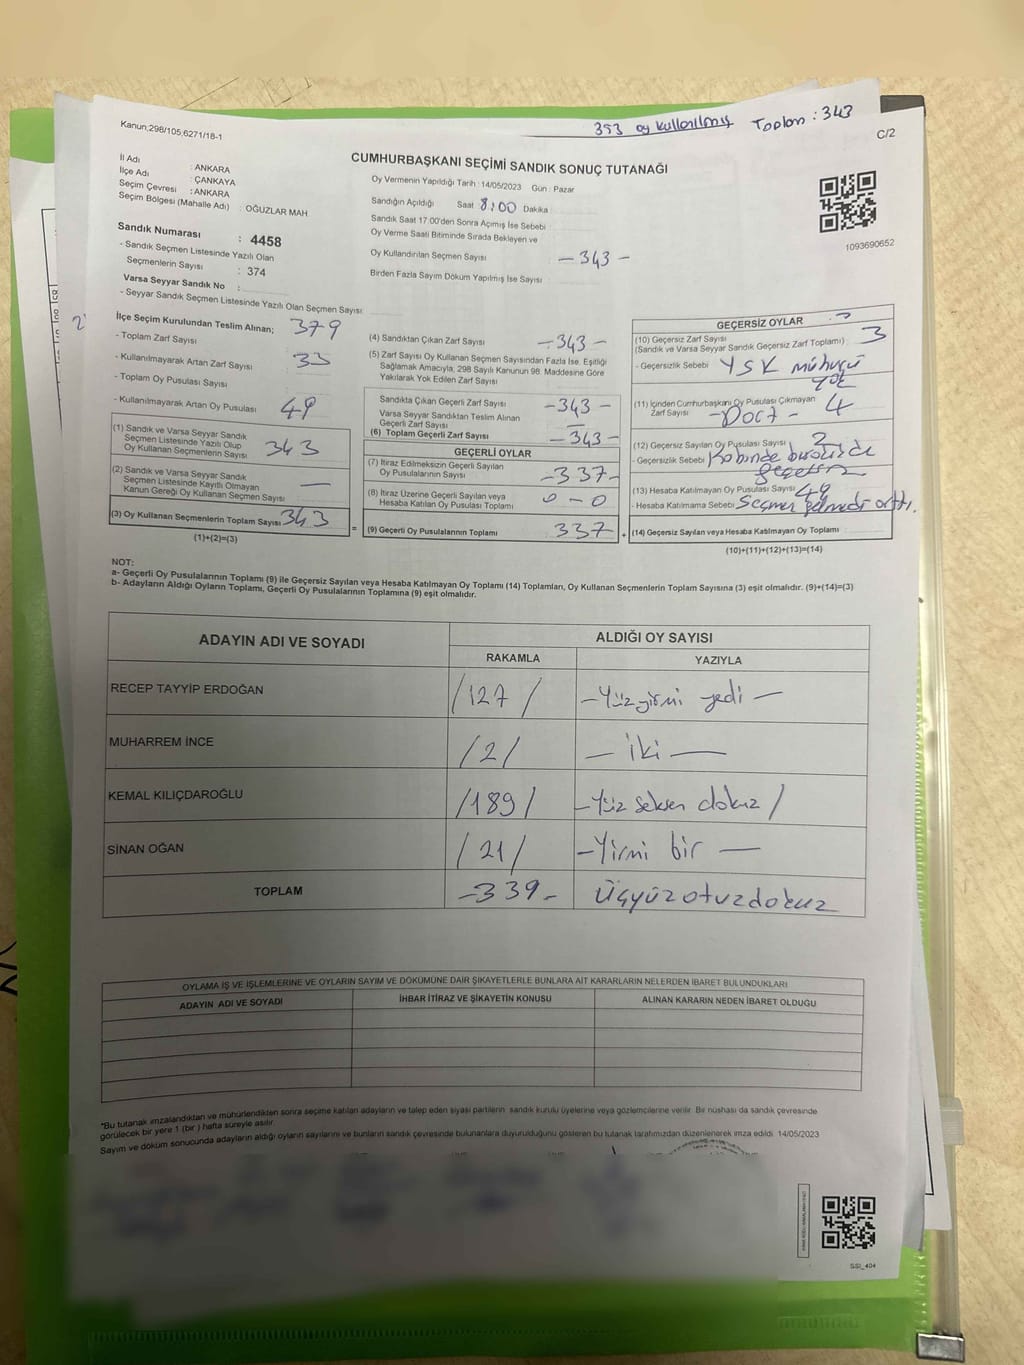 353 oy kullanılmış Toplam : 343
Kanun,298/105;6271/18-1
C/2
CUMHURBAŞKANI SEÇİMİ SANDIK SONUÇ TUTANAĞI
İl Adı : ANKARA
İlçe Adı : ÇANKAYA
Seçim Çevresi : ANKARA
Seçim Bölgesi (Mahalle Adı) : OĞUZLAR MAH
Oy Vermenin Yapıldığı Tarih : 14/05/2023 Gün : Pazar
Sandığın Açıldığı Saat 8:00 Dakika
Sandık Saat 17:00'den Sonra Açımış İse Sebebi :
Oy Verme Saati Bitiminde Sırada Bekleyen ve
Oy Kullandırılan Seçmen Sayısı : -343-
Birden Fazla Sayım Döküm Yapılmış İse Sayısı :
1093690652
Sandık Numarası : 4458
- Sandık Seçmen Listesinde Yazılı Olan
Seçmenlerin Sayısı : 374
Varsa Seyyar Sandık No :
- Seyyar Sandık Seçmen Listesinde Yazılı Olan Seçmen Sayısı
İlçe Seçim Kurulundan Teslim Alınan; 379
- Toplam Zarf Sayısı
- Kullanılmayarak Artan Zarf Sayısı : 33
- Toplam Oy Pusulası Sayısı
- Kullanılmayarak Artan Oy Pusulası 49
(1) Sandık ve Varsa Seyyar Sandık
Seçmen Listesinde Yazılı Olup
Oy Kullanan Seçmenlerin Sayısı : 343
(2) Sandık ve Varsa Seyyar Sandık
Seçmen Listesinde Kayıtlı Olmayan
Kanun Gereği Oy Kullanan Seçmen Sayısı : —
(3) Oy Kullanan Seçmenlerin Toplam Sayısı 343
(1)+(2)=(3)
(4) Sandıktan Çıkan Zarf Sayısı -343-
(5) Zarf Sayısı Oy Kullanan Seçmen Sayısından Fazla İse, Eşitliği
Sağlamak Amacıyla, 298 Sayılı Kanunun 98. Maddesine Göre
Yakılarak Yok Edilen Zarf Sayısı
Sandıkta Çıkan Geçerli Zarf Sayısı -343-
Varsa Seyyar Sandıktan Teslim Alınan
Geçerli Zarf Sayısı —
(6) Toplam Geçerli Zarf Sayısı -343-
GEÇERLİ OYLAR
(7) İtiraz Edilmeksizin Geçerli Sayılan
Oy Pusulalarının Sayısı -337-
(8) İtiraz Üzerine Geçerli Sayılan veya
Hesaba Katılan Oy Pusulası Toplamı 0 - 0
= (9) Geçerli Oy Pusulalarının Toplamı : 337 +
GEÇERSİZ OYLAR
(10) Geçersiz Zarf Sayısı
(Sandık ve Varsa Seyyar Sandık Geçersiz Zarf Toplamı) : 3
- Geçersizlik Sebebi : YSK mühürü
yok
(11) İçinden Cumhurbaşkanı Oy Pusulası Çıkmayan
Zarf Sayısı -Dört- 4
(12) Geçersiz Sayılan Oy Pusulası Sayısı : 2
- Geçersizlik Sebebi
(13) Hesaba Katılmayan Oy Pusulası Sayısı 49
- Hesaba Katılmama Sebebi : Seçmen gelmedi arttı.
(14) Geçersiz Sayılan veya Hesaba Katılmayan Oy Toplamı :
(10)+(11)+(12)+(13)=(14)
NOT:
a- Geçerli Oy Pusulalarının Toplamı (9) ile Geçersiz Sayılan veya Hesaba Katılmayan Oy Toplamı (14) Toplamları, Oy Kullanan Seçmenlerin Toplam Sayısına (3) eşit olmalıdır. (9)+(14)=(3)
b- Adayların Aldığı Oyların Toplamı, Geçerli Oy Pusulalarının Toplamına (9) eşit olmalıdır.
ADAYIN ADI VE SOYADI ALDIĞI OY SAYISI
RAKAMLA YAZIYLA
RECEP TAYYİP ERDOĞAN /127/ -Yüzyirmi yedi-
MUHARREM İNCE /2/ - iki -
KEMAL KILIÇDAROĞLU /189/ -Yüz seksen dokuz/
SİNAN OĞAN /21/ -Yirmi bir -
TOPLAM -339- Üçyüzotuzdokuz
OYLAMA İŞ VE İŞLEMLERİNE VE OYLARIN SAYIM VE DÖKÜMÜNE DAİR ŞİKAYETLERLE BUNLARA AİT KARARLARIN NELERDEN İBARET BULUNDUKLARI
ADAYIN ADI VE SOYADI İHBAR İTİRAZ VE ŞİKAYETİN KONUSU ALINAN KARARIN NEDEN İBARET OLDUĞU
*Bu tutanak imzalandıktan ve mühürlendikten sonra seçime katılan adayların ve talep eden siyasi partilerin sandık kurulu üyelerine veya gözlemcilerine verilir. Bir nüshası da sandık çevresinde
görülecek bir yere 1 (bir) hafta süreyle asılır.
Sayım ve döküm sonucunda adayların aldığı oyların sayılarını ve bunların sandık çevresinde bulunanlara duyurulduğunu gösteren bu tutanak tarafımızdan düzenlenerek imza edildi. 14/05/2023
SSI_404